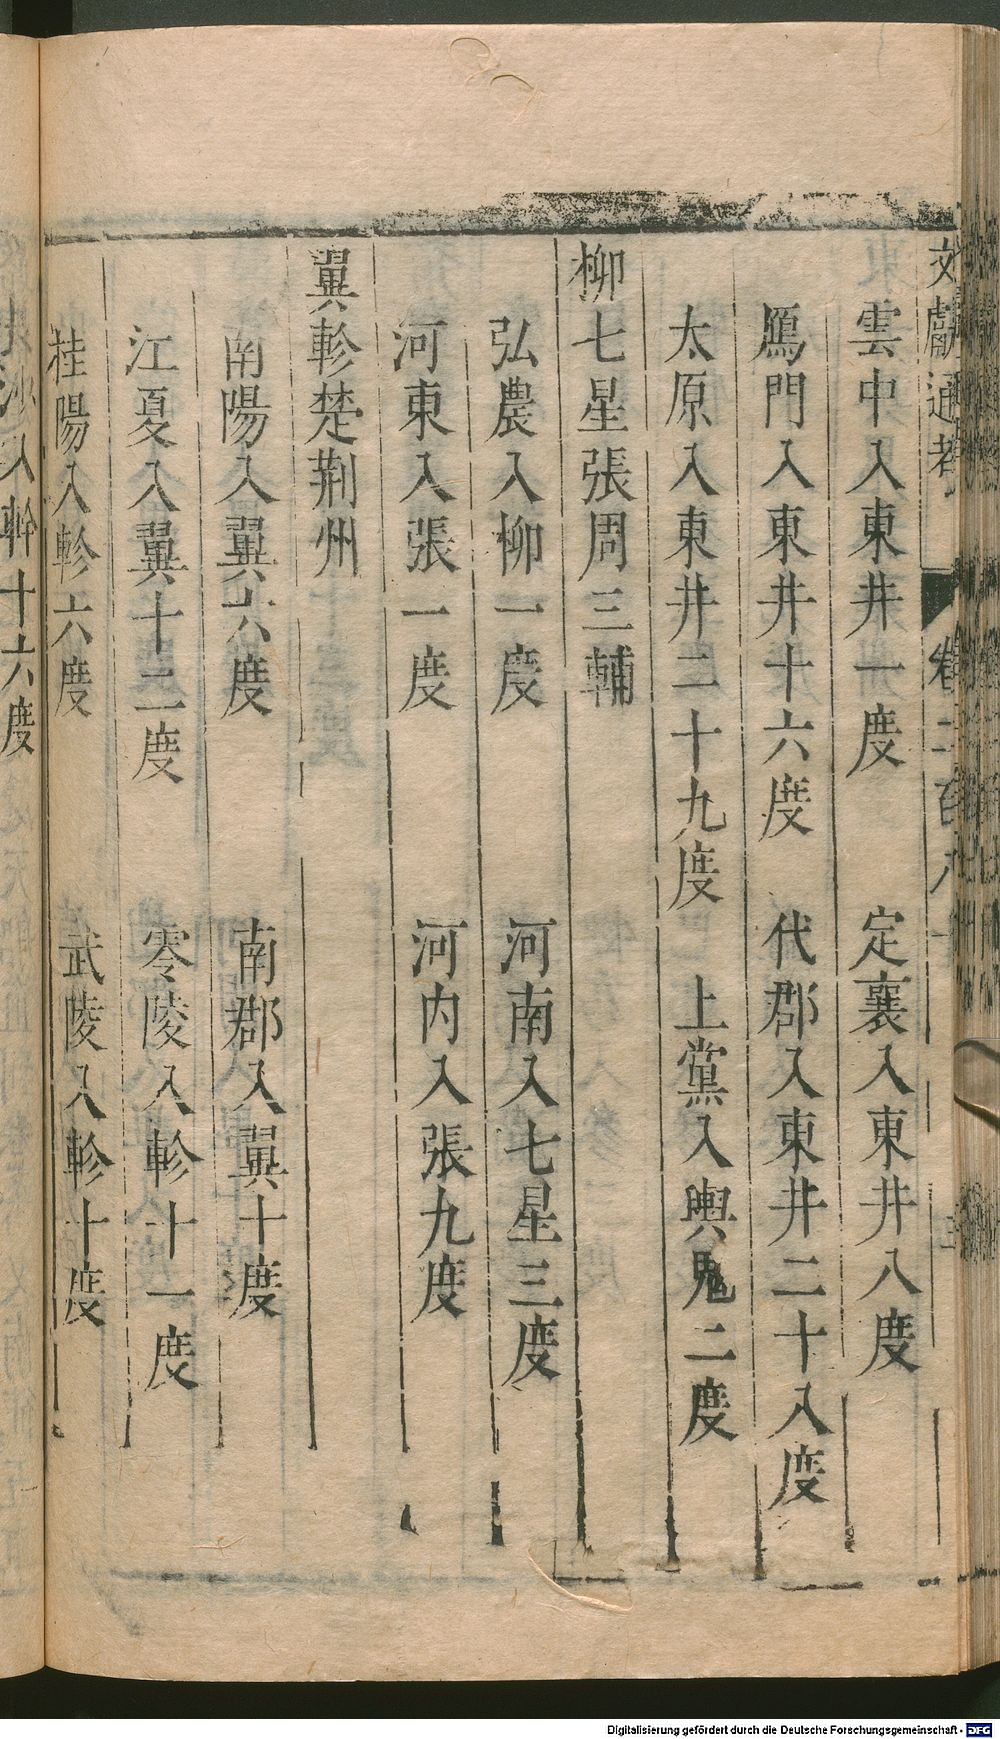 文獻通考 卷二百八十
雲中入東井一度 定襄入東井八度
鴈門入東井十六度 代郡入東井二十八度
太原入東井二十九度 上黨入輿鬼二度
柳七星張周三輔
弘農入柳一度 河南入七星三度
河東入張一度 河內入張九度
翼軫楚荆州
南陽入翼六度 南郡入翼十度
江夏入翼十二度 零陵入軫十一度
桂陽入軫六度 武陵入軫十度
長沙入軫十六度
Digitalisierung gefördert durch die Deutsche Forschungsgemeinschaft - DFG